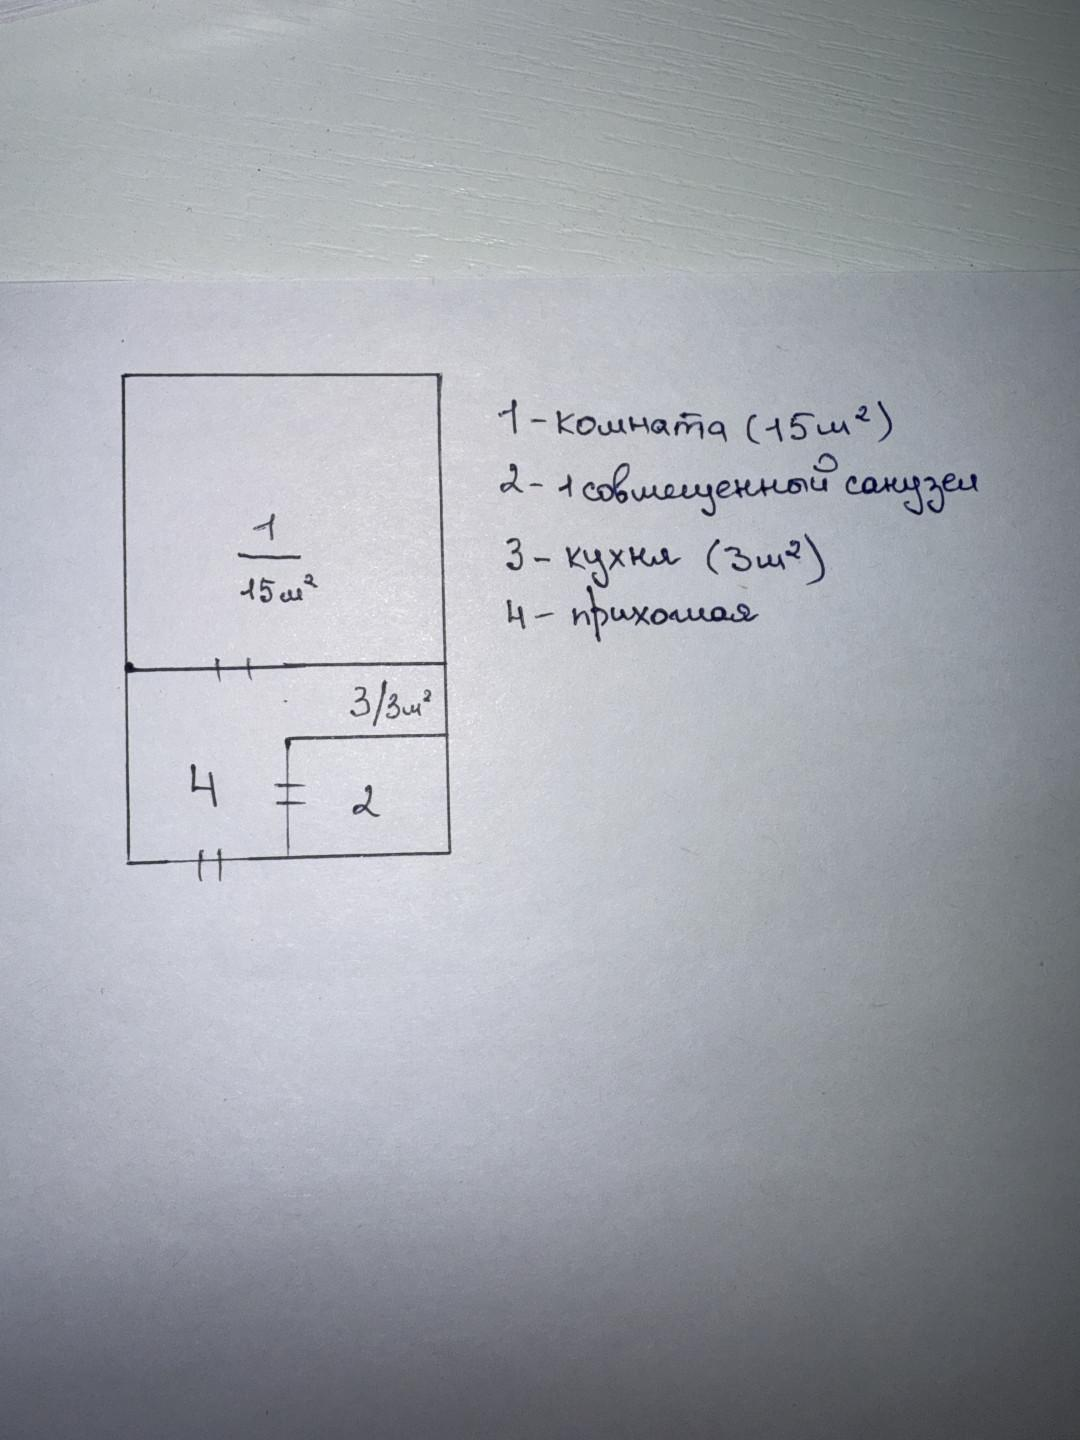 1
15м²
3/3м²
4
2
1 - комната (15м²)
2 - 1 совмещенный санузел
3 - кухня (3м²)
4 - прихожая